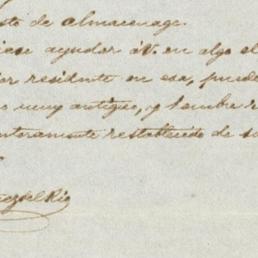 sto de almacenage.
ayudar á V. en algo el
or residente en esa, puede
o muy antiguo, y hombre
enteramente restablecido de sa
del Rio